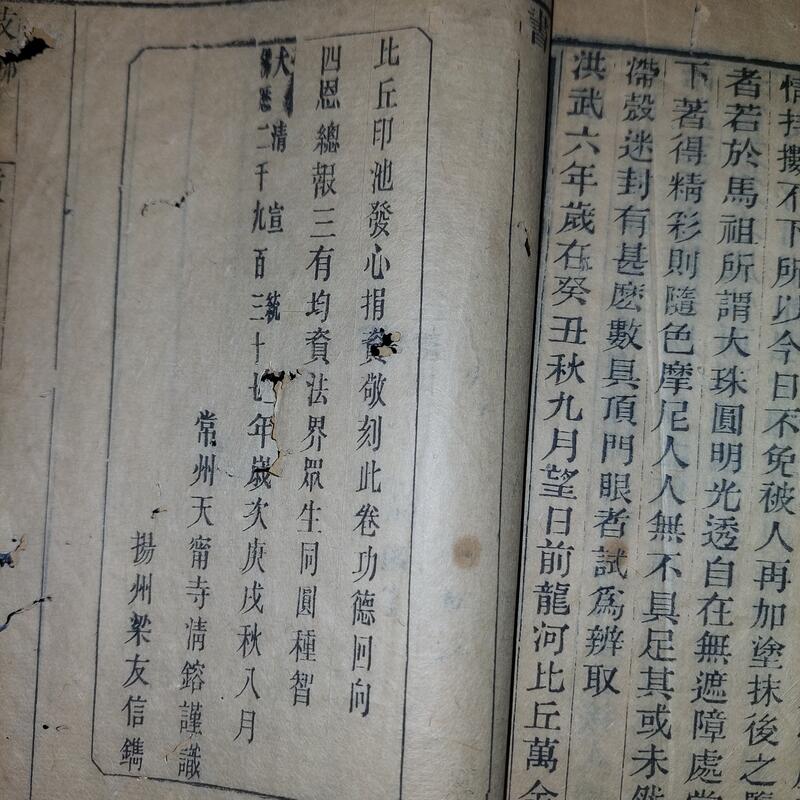 情挂摟不下所以今日不免被人再加塗抹後之
者若於馬祖所謂大珠圓明光透自在無遮障處
下著得精彩則隨色摩尼人人無不具足其或未然
滯殼迷封有甚麼數具頂門眼者試爲辨取
洪武六年歲在癸丑秋九月望日前龍河比丘萬金
書
比丘印池發心捐資敬刻此卷功德回向
四恩總報三有均資法界眾生同圓種智
大清宣統
佛曆二千九百三十七年歲次庚戌秋八月
常州天甯寺清鎔謹識
揚州梁友信鐫